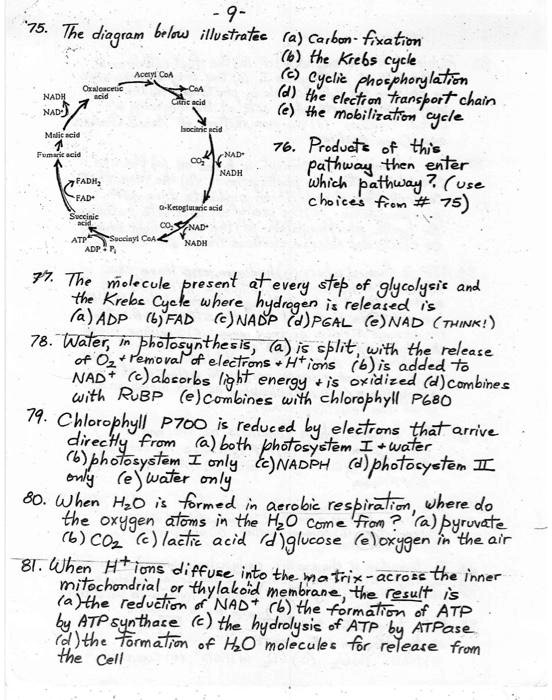 - 9-
75. The diagram below illustrates
(a) Carbon-fixation
(b) the Krebs cycle
(c) Cyclic phosphorylation
(d) the electron transport chain
(e) the mobilization cycle
Acetyl CoA
CoA
Oxaloacetic
acid
Citric acid
NADH
NAD+
Isocitric acid
Malic acid
Fumaric acid
CO2
NAD+
NADH
FADH2
FAD+
α-Ketoglutaric acid
Succinic
acid
CO2
NAD+
NADH
ATP
Succinyl CoA
ADP + Pi
76. Products of this
pathway then enter
which pathway? (use
choices from # 75)
77. The molecule present at every step of glycolysis and
the Krebs Cycle where hydrogen is released is
(a) ADP (b) FAD (c) NADP (d) PGAL (e) NAD (THINK!)
78. Water, in photosynthesis, (a) is split, with the release
of O2 + removal of electrons + H+ ions (b) is added to
NAD+ (c) absorbs light energy + is oxidized (d) combines
with RuBP (e) combines with chlorophyll P680
79. Chlorophyll P700 is reduced by electrons that arrive
directly from (a) both photosystem I + water
(b) photosystem I only (c) NADPH (d) photosystem II
only (e) water only
80. When H2O is formed in aerobic respiration, where do
the oxygen atoms in the H2O come from? (a) pyruvate
(b) CO2 (c) lactic acid (d) glucose (e) oxygen in the air
81. When H+ ions diffuse into the matrix - across the inner
mitochondrial or thylakoid membrane, the result is
(a) the reduction of NAD+ (b) the formation of ATP
by ATP synthase (c) the hydrolysis of ATP by ATPase
(d) the formation of H2O molecules for release from
the cell